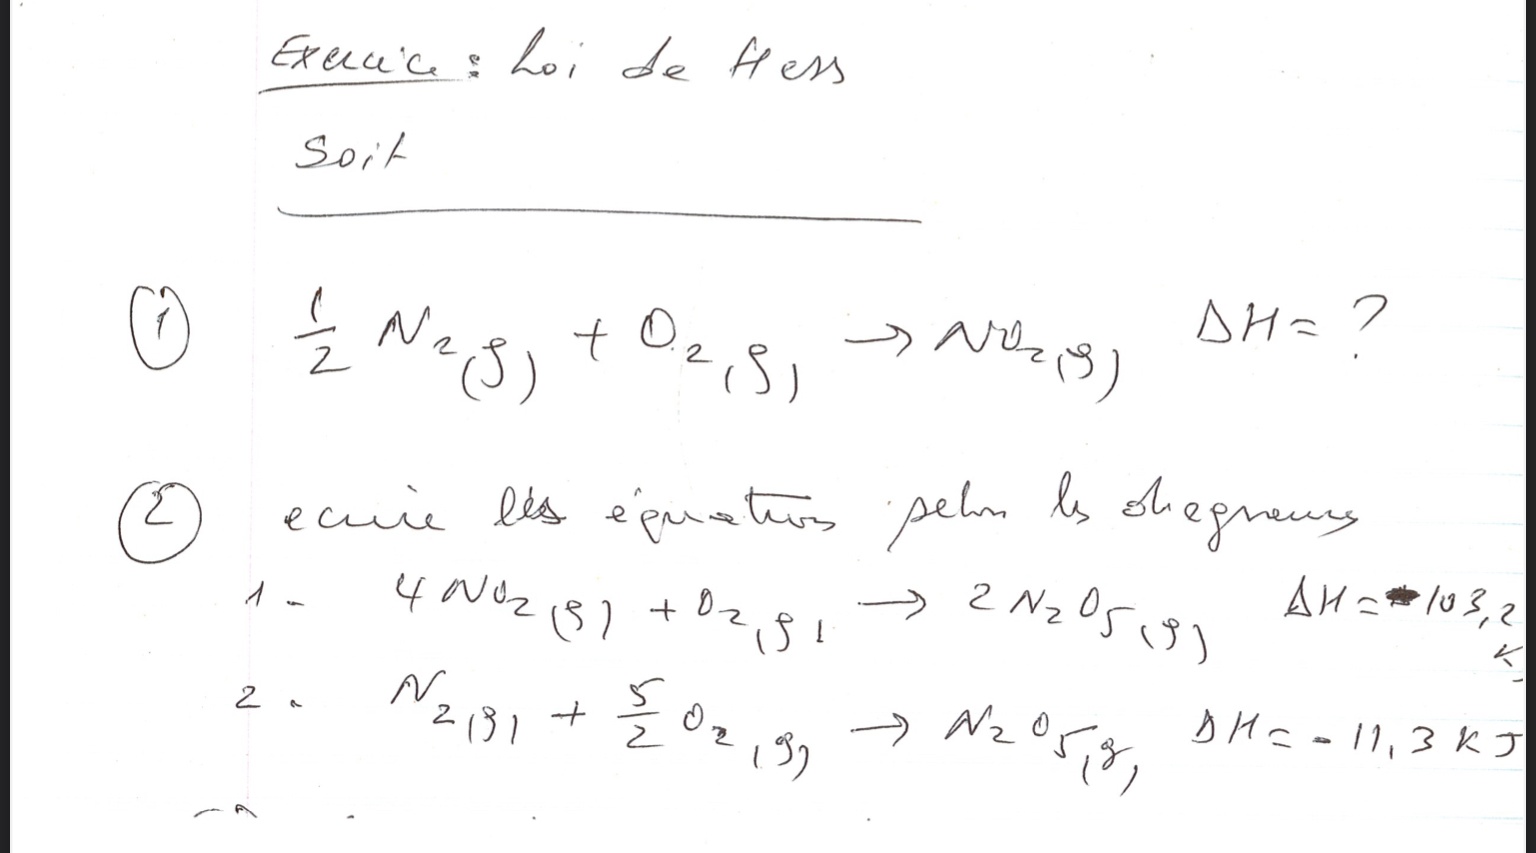 Exercice : Loi de Hess
Soit
① 1/2 N2(g) + O2(g) → NO2(g) ΔH = ?
② ecrire les équations selon les diagrammes
1 - 4 NO2(g) + O2(g) → 2 N2O5(g) ΔH = -103,2 KJ
2 - N2(g) + 5/2 O2(g) → N2O5(g) ΔH = - 11,3 KJ